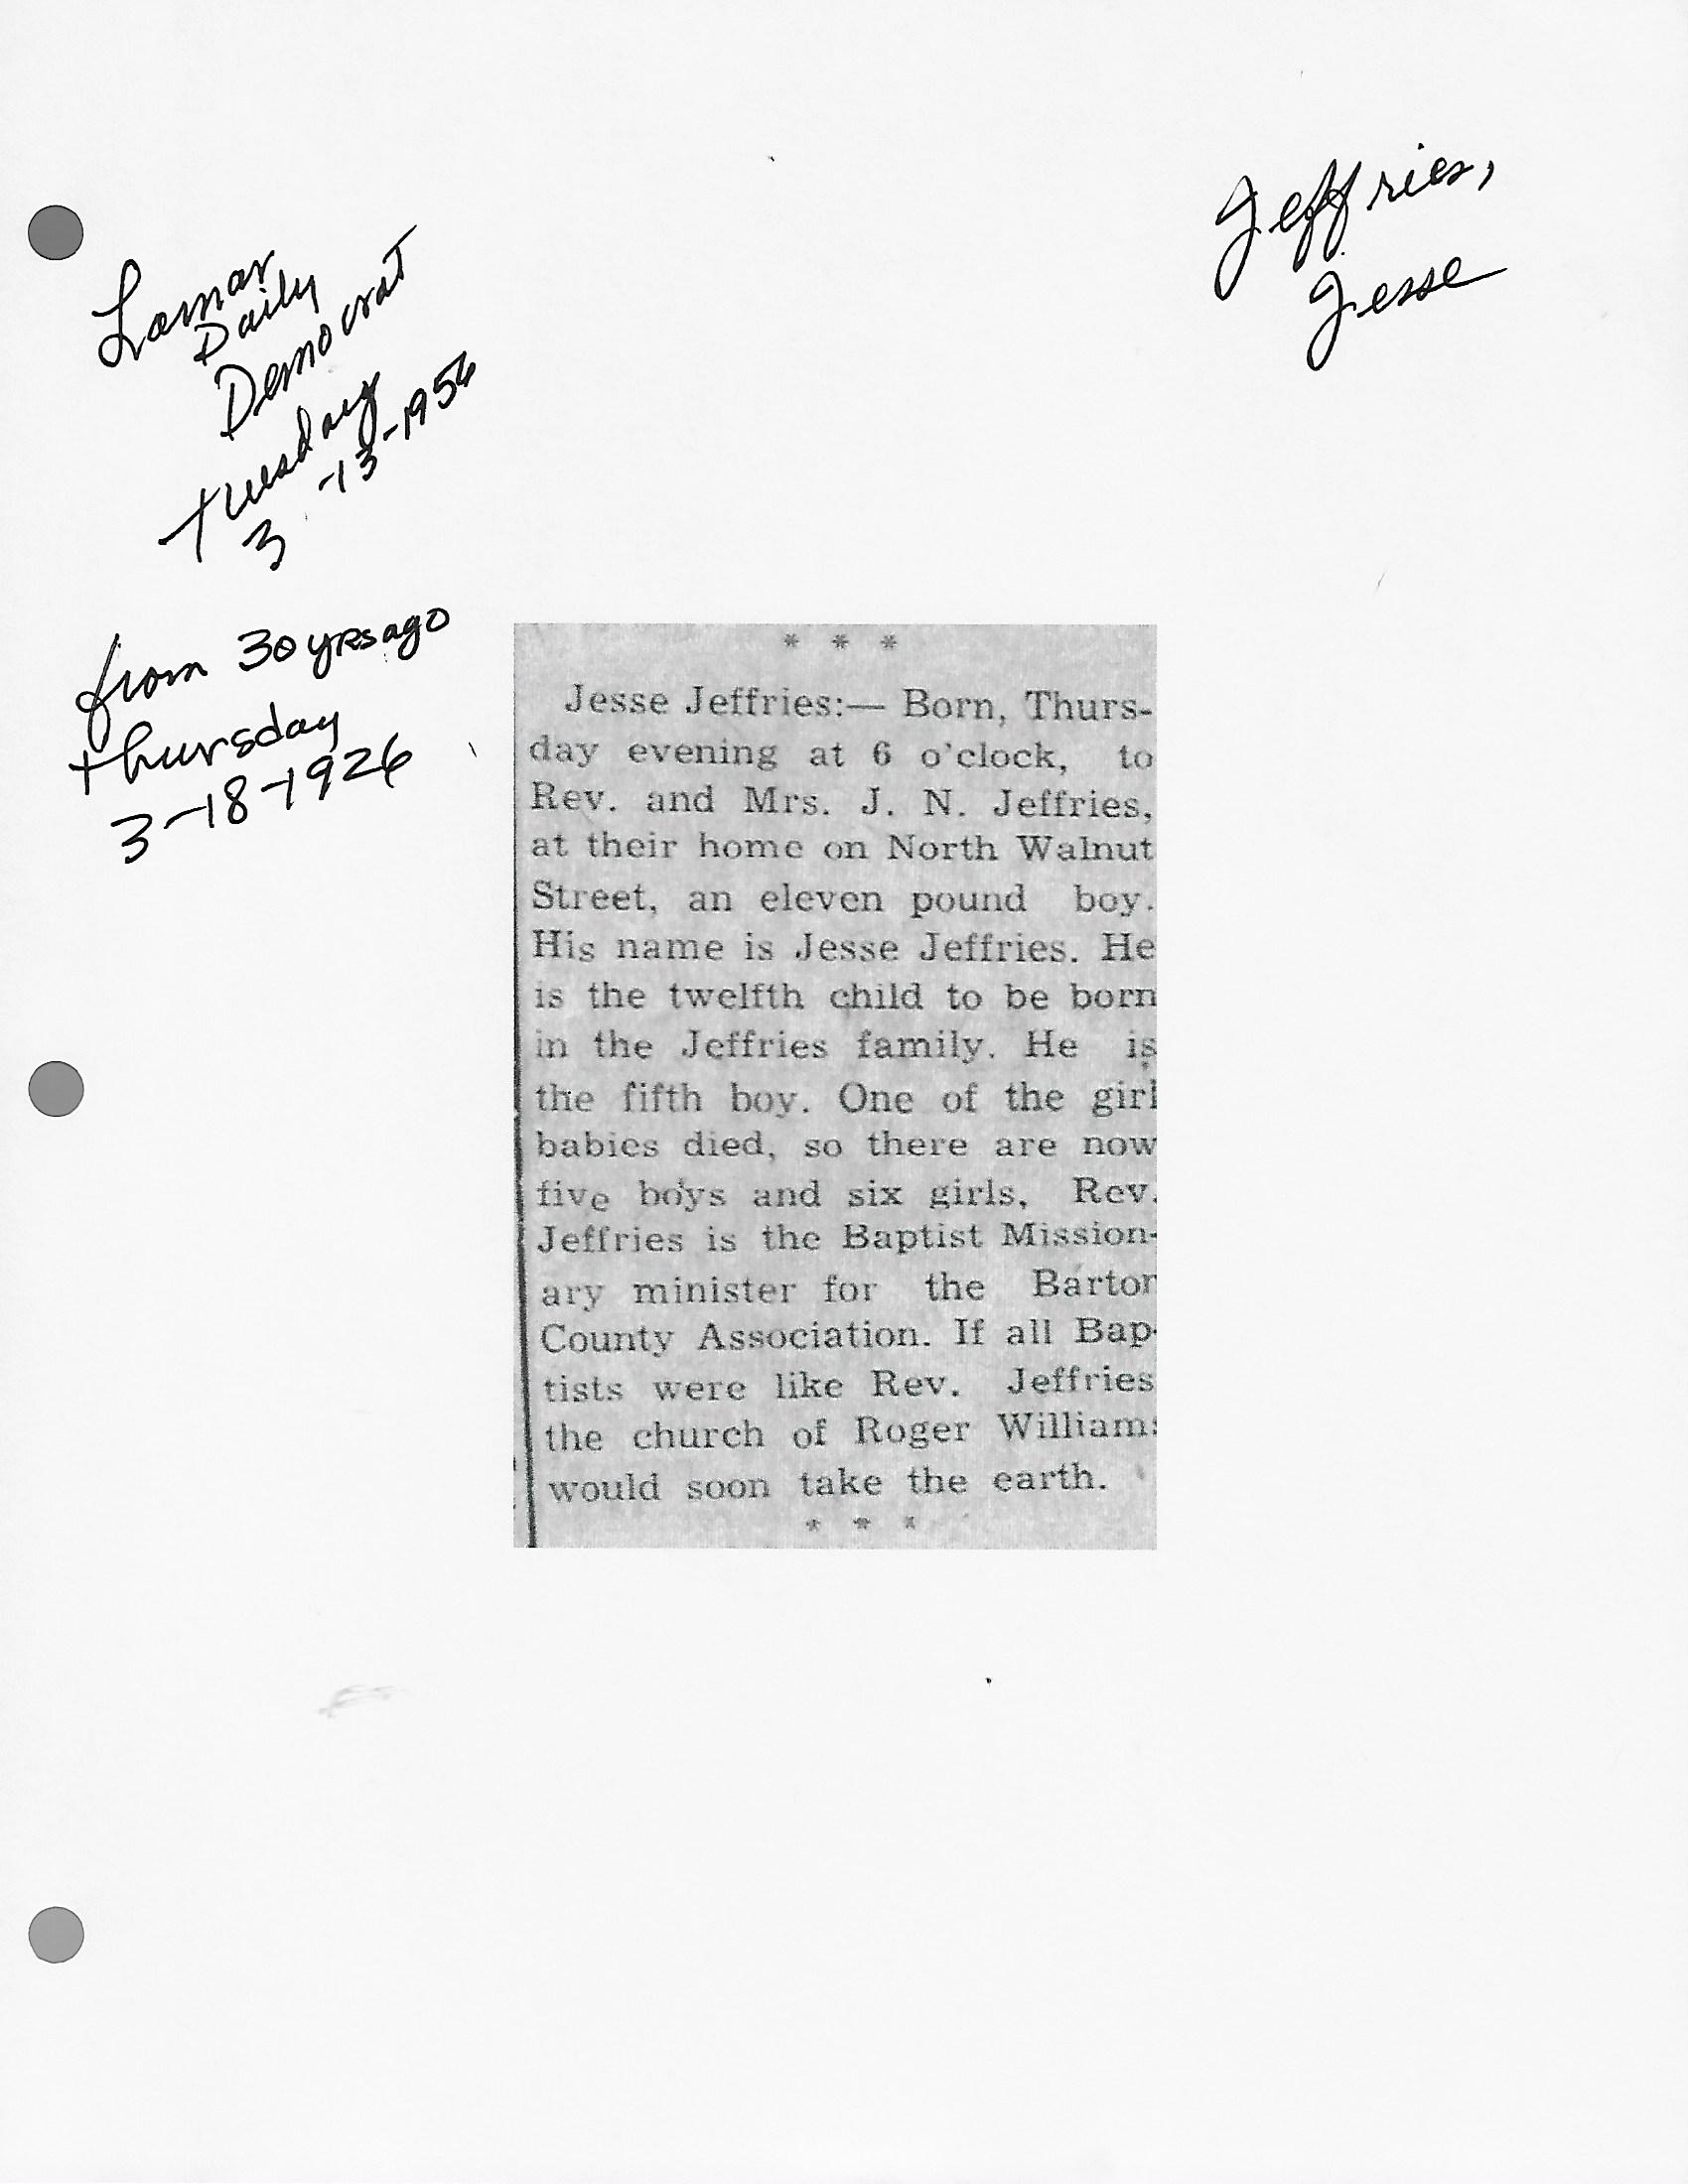 Jeffries,
Jesse
Lamar
Daily
Democrat
Tuesday
3-13-1956
from 30 yrs ago
thursday
3-18-1926
* * *
Jesse Jeffries:— Born, Thurs-
day evening at 6 o'clock, to
Rev. and Mrs. J. N. Jeffries,
at their home on North Walnut
Street, an eleven pound boy.
His name is Jesse Jeffries. He
is the twelfth child to be born
in the Jeffries family. He is
the fifth boy. One of the girl
babies died, so there are now
five boys and six girls, Rev.
Jeffries is the Baptist Mission-
ary minister for the Barton
County Association. If all Bap-
tists were like Rev. Jeffries
the church of Roger Williams
would soon take the earth.
* * *